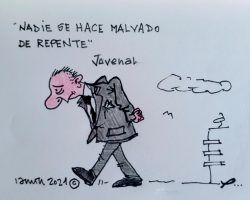 "NADIE SE HACE MALVADO
DE REPENTE"
Juvenal
2021 ©